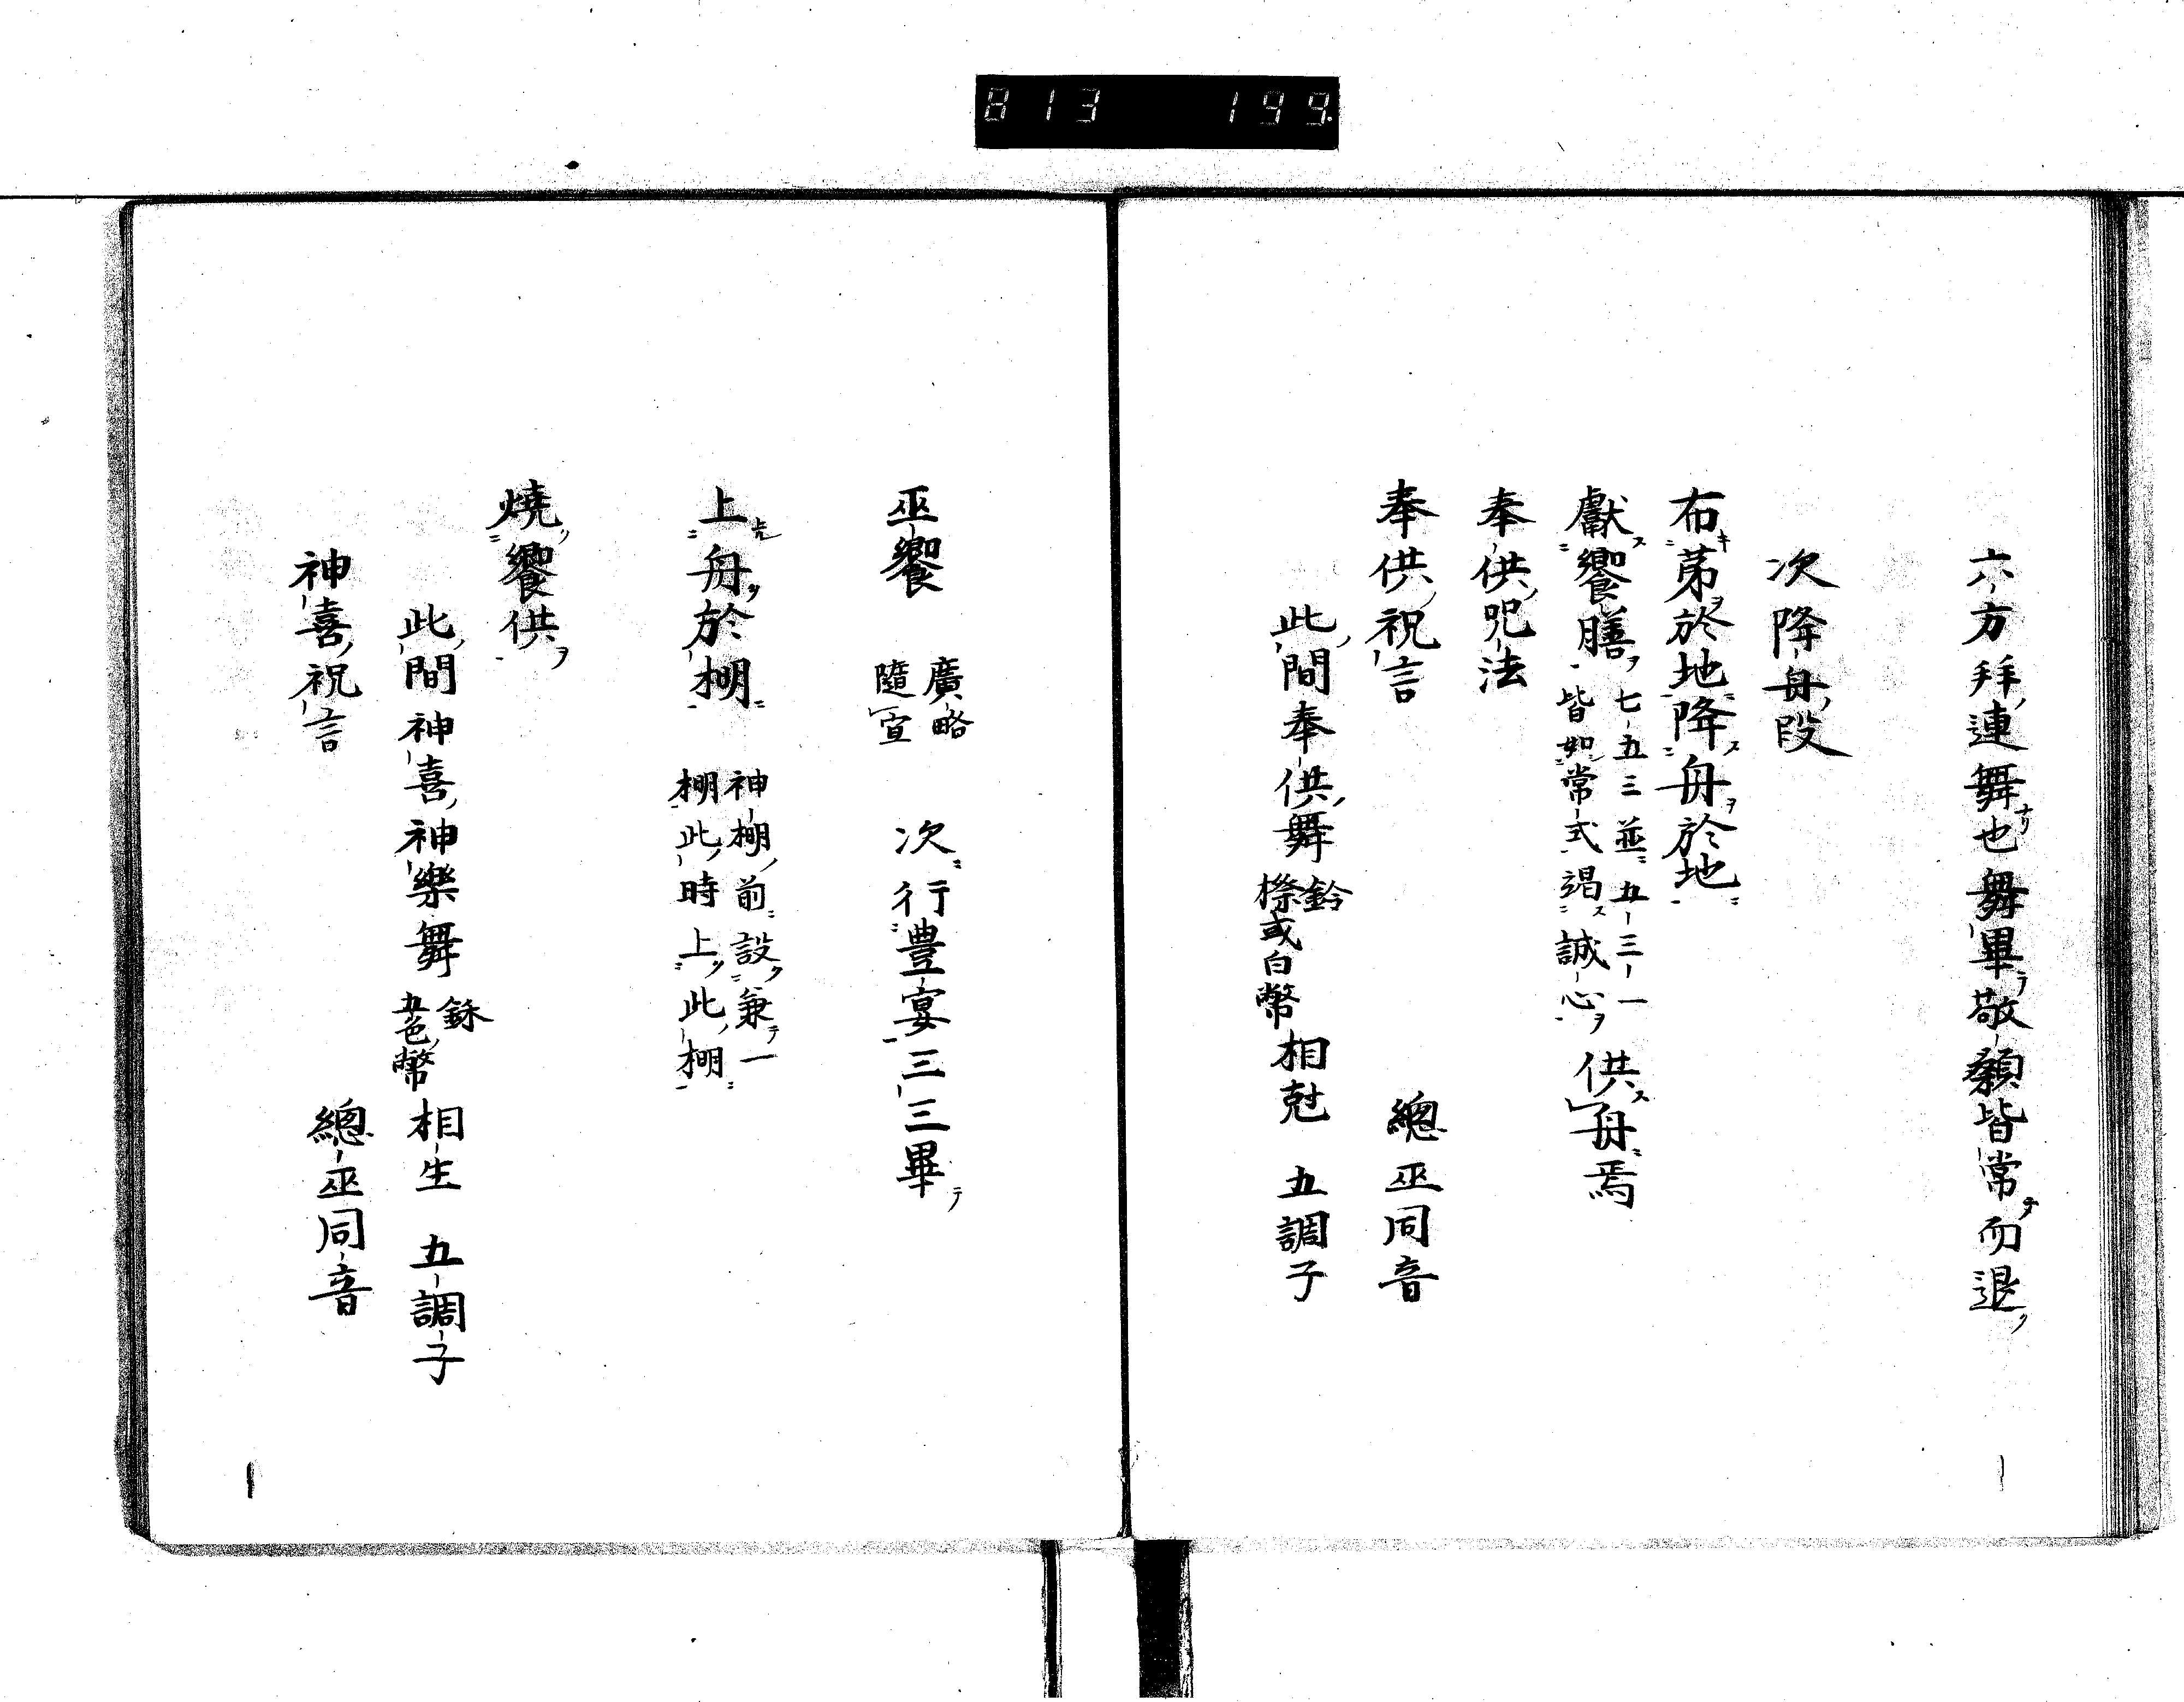 813 199.
六方拜連舞也舞畢敬額皆常而退
次降舟段
布茅於地降舟於地
獻饗膳 七五三並五三一
皆如常式竭誠心 供舟焉
奉供咒法
奉供祝言 總巫同音
此間奉供舞 鈴
或白幣 相尅 五調子
巫饗 廣略
隨宣 次行豊宴三三畢
上舟於棚 神棚前設兼一
棚此時上此棚
燒饗供
此間神喜神樂舞
五色幣 相生 五調子
神喜祝言 總巫同音